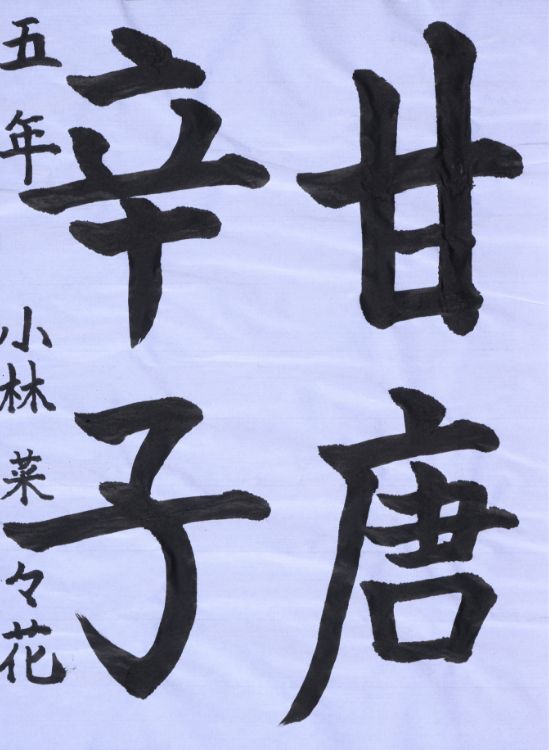 甘唐
辛子
五年 小林菜々花